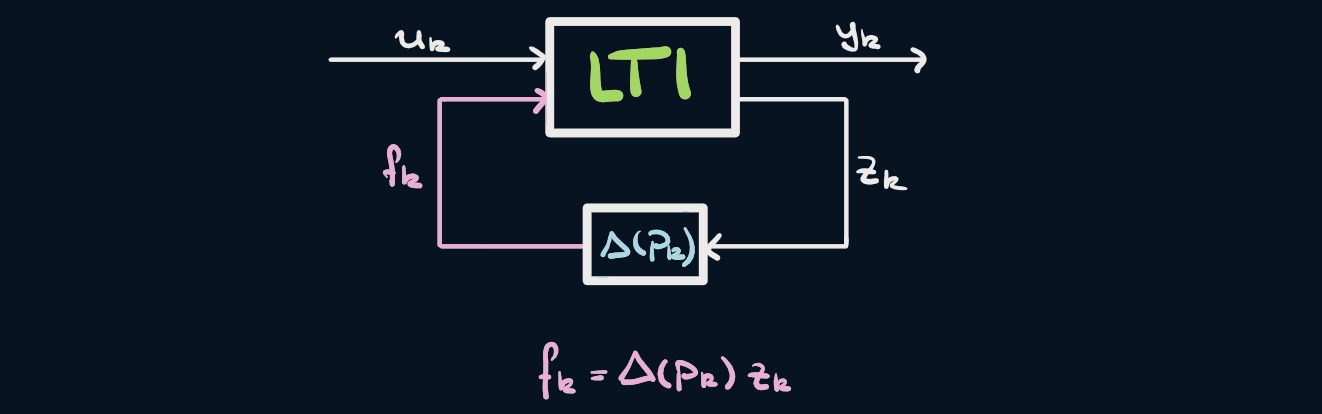 u_k
y_k
LTI
f_k
z_k
Δ(p_k)
f_k = Δ(p_k) z_k